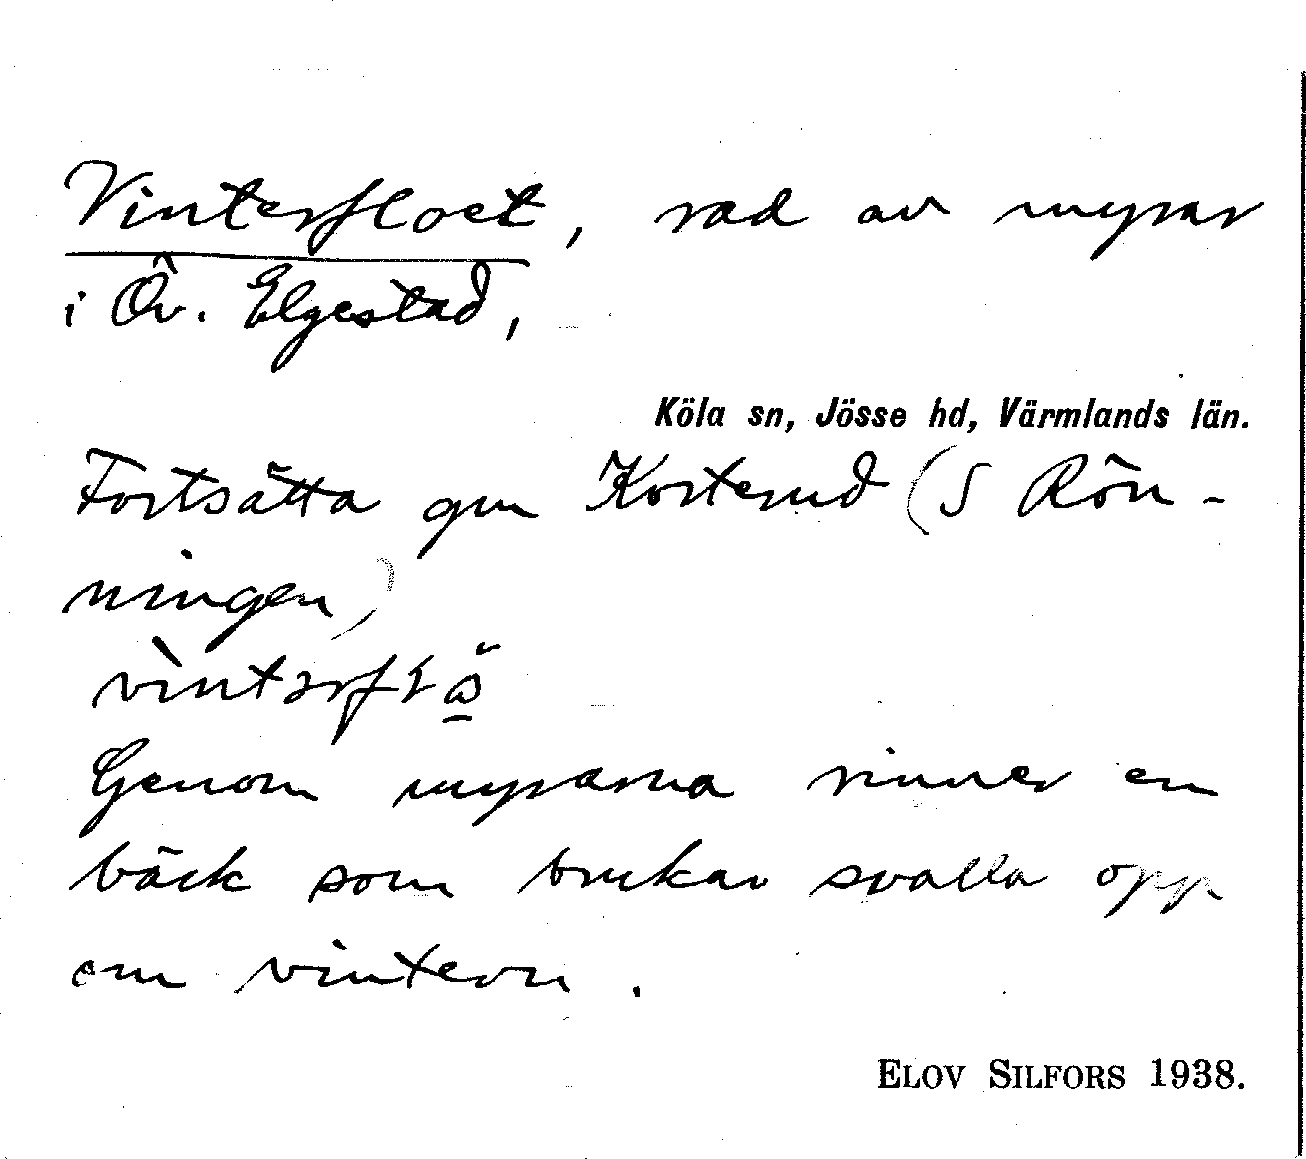 Vinterfloet, rad av myrar
i Öv. Elgestad,
Köla sn, Jösse hd, Värmlands län.
Fortsätta gm Korterud (S Rön-
ningen)
Genom myrarna rinner en
bäck som brukar svalla opp
om vintern.
ELOV SILFORS 1938.